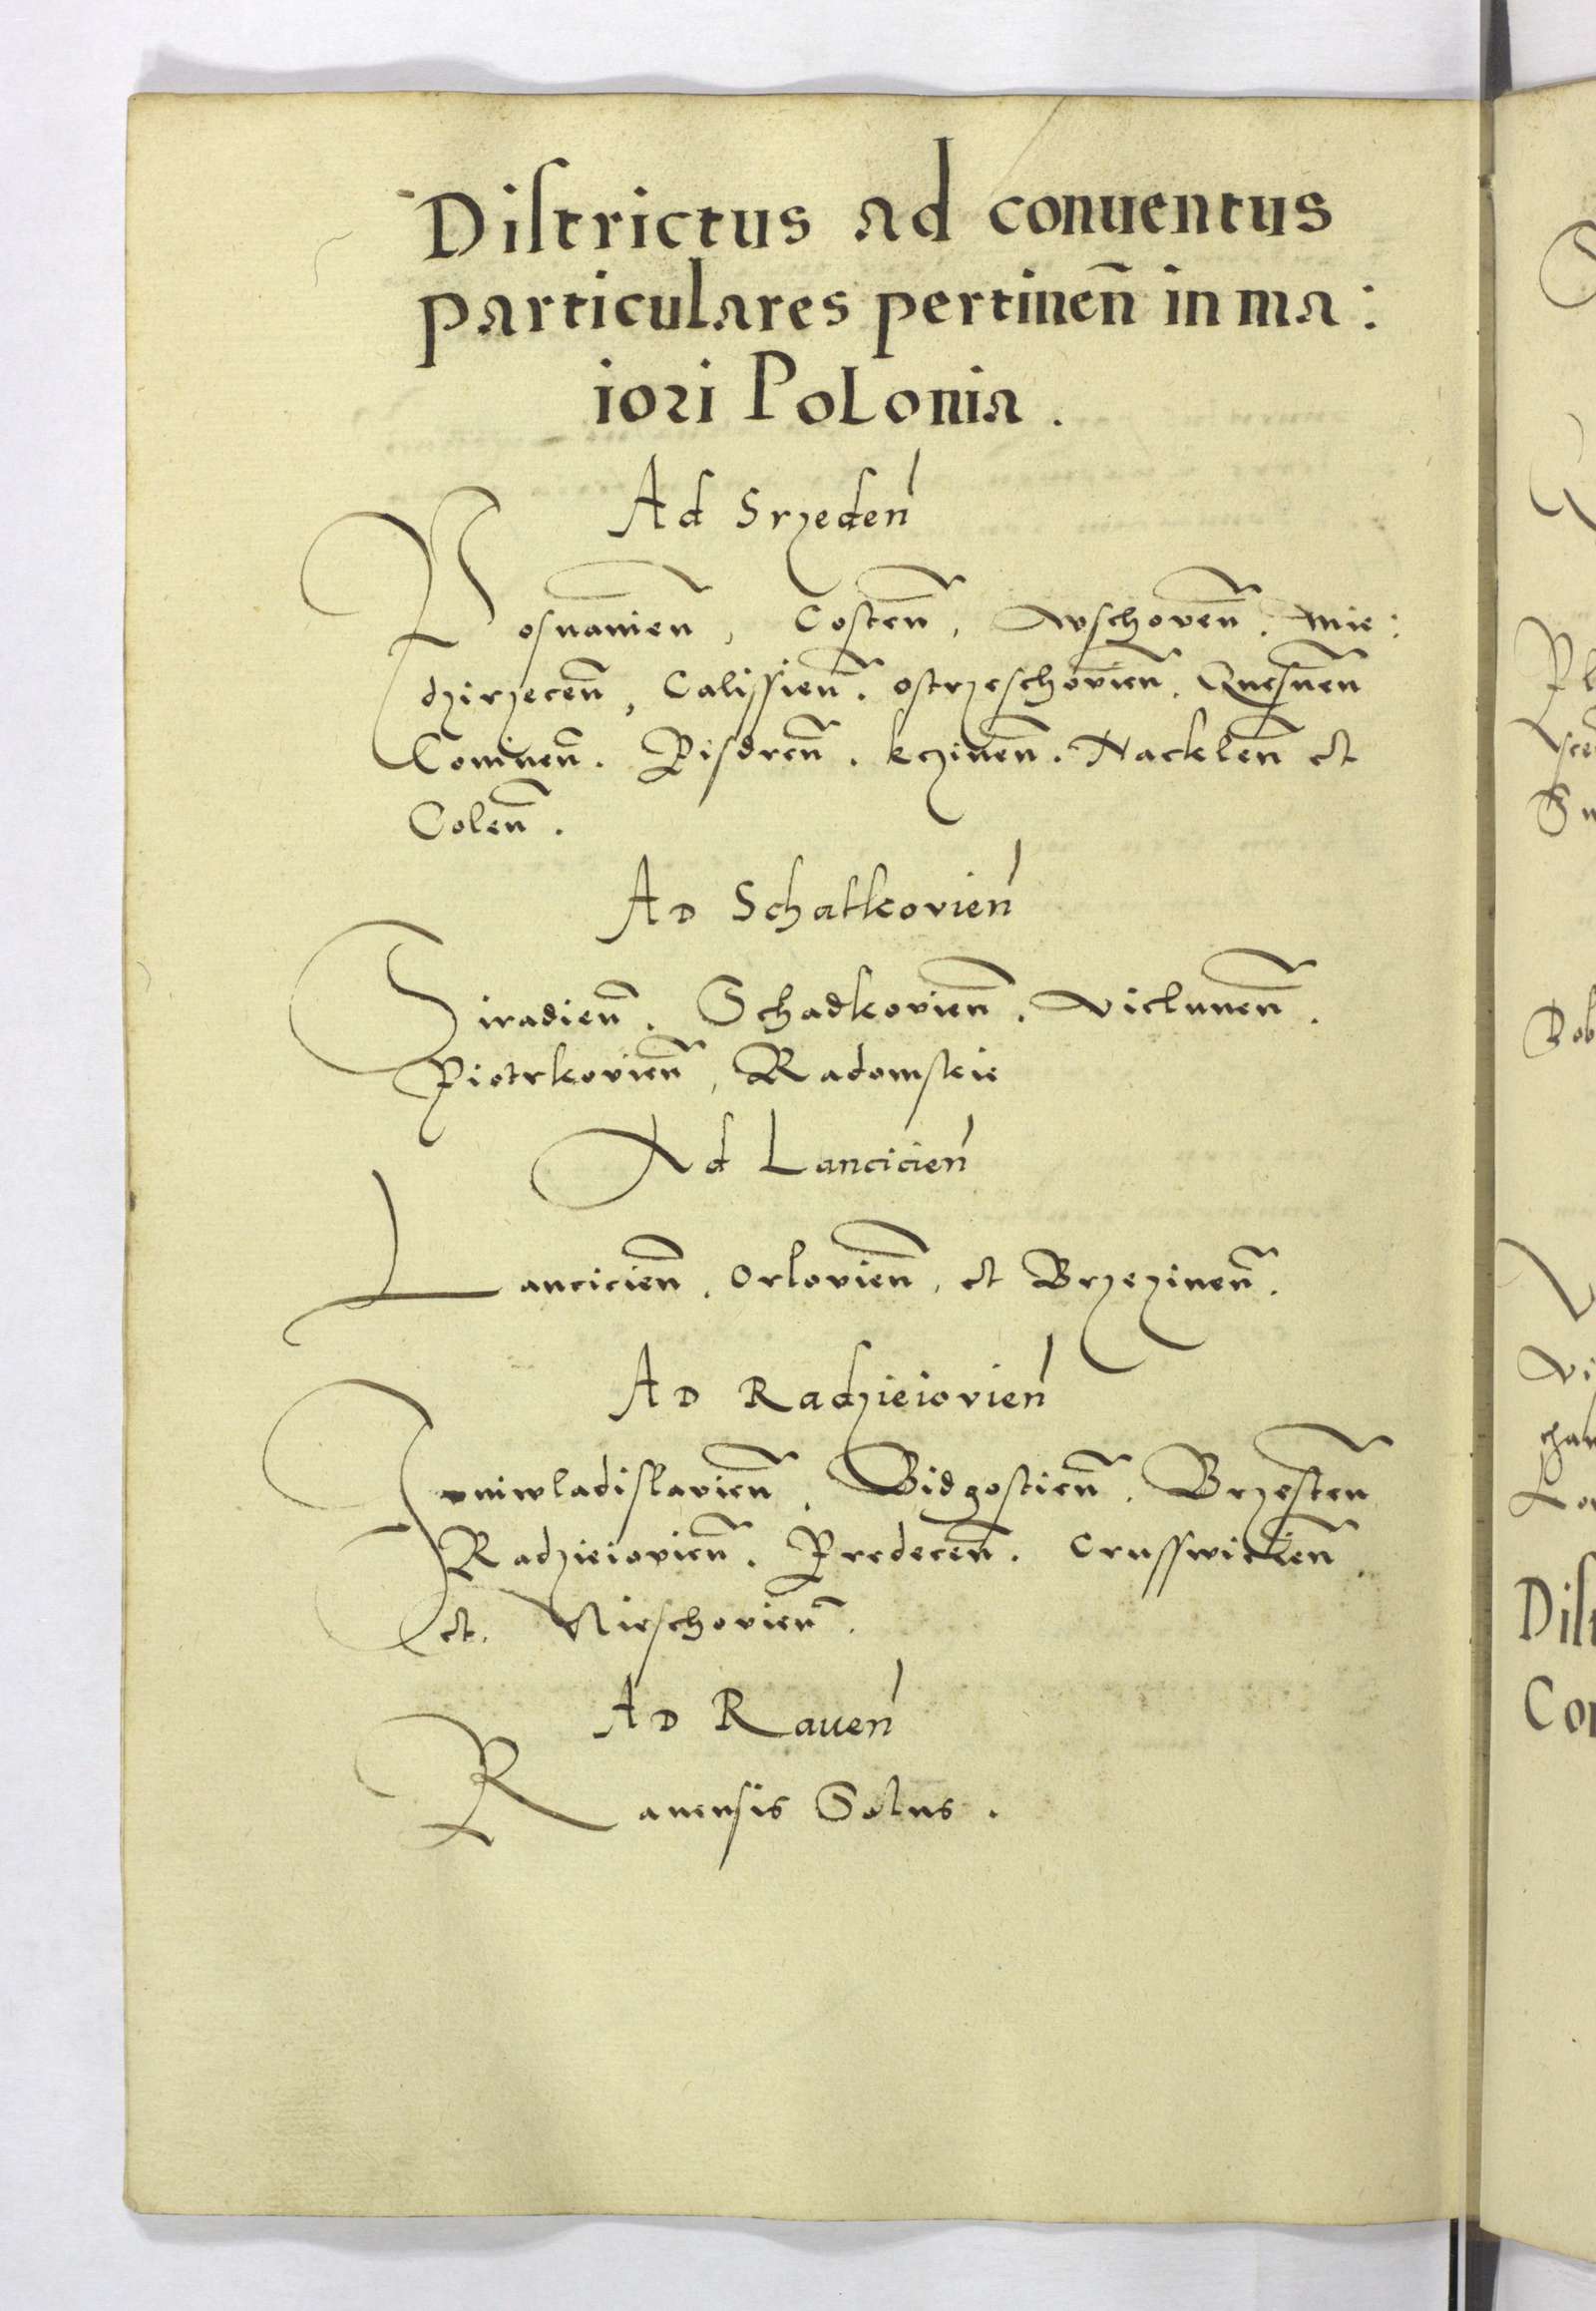 Districtus ad conuentus
particulares pertinen̄ in ma:
iori Polonia.
Ad Srzeden̄
Posnanien̄, Costen̄, Wschoven̄. Mie:
dzirzecen̄, Calissien̄. Ostrzeschovien̄. Gnesnen̄
Coninen̄. Pisdren̄. Kczinen̄. Nacklen̄ et
Colen̄.
Ad Schatkovien̄
Siradien̄. Schadkovien̄. Vielunen̄.
Piotrkovien̄, Radomskie
Ad Lancicien̄
Lancicien̄. Orlovien̄, et Brzezinen̄.
Ad Radzieiovien̄
Iuniwladislavien̄. Bidgostien̄. Brzesten̄
Radzieiovien̄. Predecen̄. Crusswicien̄.
et. Nieschovien̄.
Ad Rauen̄
Rauensis Solus.